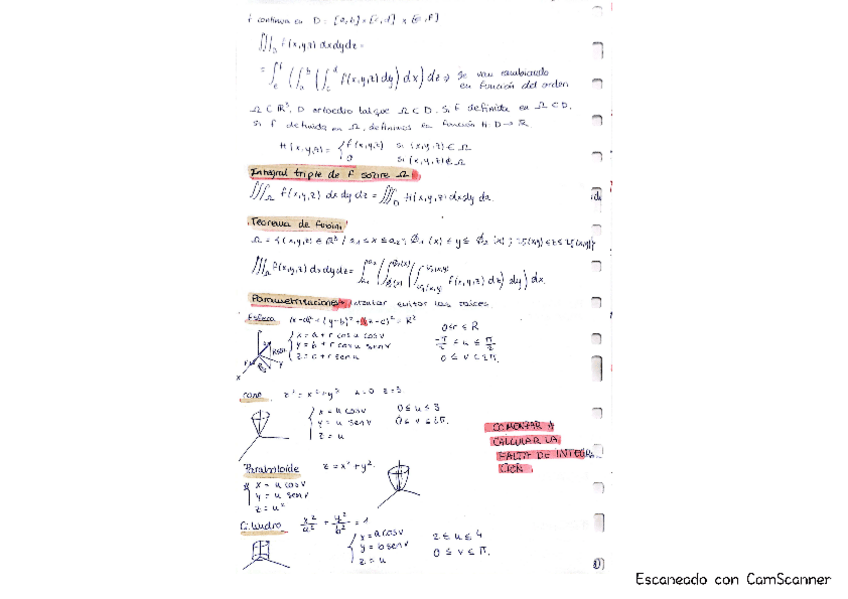 f continua en D: [a,b] × [c,d] × [e,f]
∭_D f(x,y,z) dxdydz =
= ∫_e^f (∫_a^b (∫_c^d f(x,y,z) dy) dx) dz → Se van cambiando
en función del orden
Ω ⊂ R³, D ortoedro tal que Ω ⊂ D. Si f definida en Ω ⊂ D.
Si f definida en Ω, definimos en función H D → R.
H(x,y,z) = { f(x,y,z) si (x,y,z) ∈ Ω
0 si (x,y,z) ∉ Ω
Integral triple de f sobre Ω
∭_Ω f(x,y,z) dx dy dz = ∭_D H(x,y,z) dx dy dz.
Teorema de Fubini
Ω = {(x,y,z) ∈ R³ / a₁ ≤ x ≤ a₂; Φ₁(x) ≤ y ≤ Φ₂(x); (x,y) ≤ z ≤ (x,y)}
∭_Ω f(x,y,z) dxdydz = f(x,y,z) dz) dy) dx.
Parametrizaciones evitar las raíces.
Esfera (x-a)² + (y-b)² + (z-c)² = R²
x = a + r cosu cosv
y = b + r cosu senv
z = c + r senu
0 ≤ r ≤ R
-π/2 ≤ u ≤ π/2
0 ≤ v ≤ 2π.
cono z² = x² + y² z=0 z=3
x = u cosv 0 ≤ u ≤ 3
y = u senv 0 ≤ v ≤ 2π.
z = u
COMENZAR A
CALCULAR LA
FALTA DE INTEGRA
CIÓN
Paraboloide z = x² + y²
x = u cosv
y = u senv
z = u²
Cilindro x²/a² + y²/b² = 1
x = a cosv 2 ≤ u ≤ 4
y = b senv 0 ≤ v ≤ π.
z = u
Escaneado con CamScanner